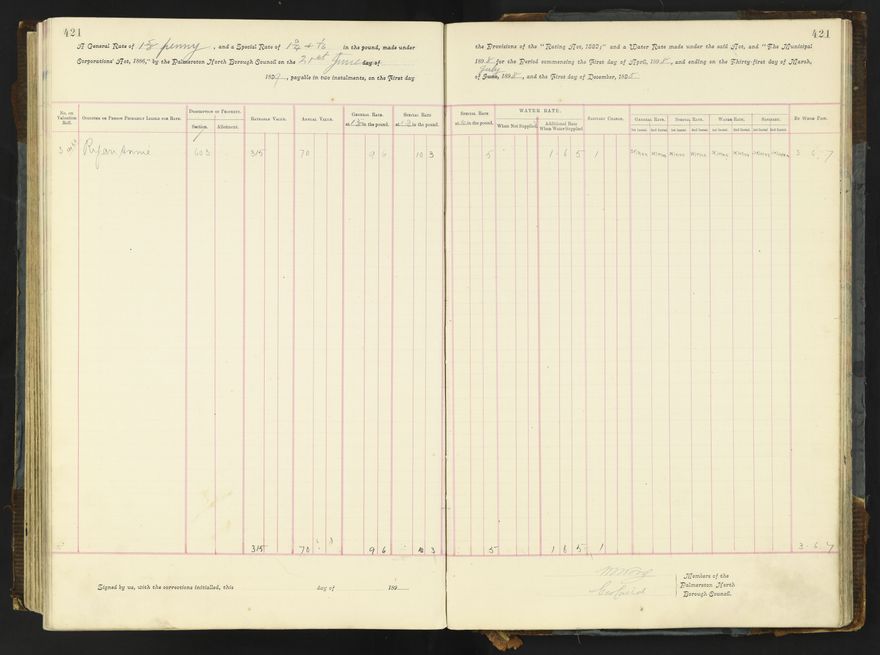 421
A General Rate of penny, and a Special Rate of in the pound, made under
Corporations' Act, 1886," by the Palmerston North Borough Council on the 21st June day of
189, payable in two instalments, on the First day
No. on Valuation Roll.
Occupier or Person Primarily Liable for Rate.
Description of Property.
Section. Allotment.
Rateable Value.
Annual Value.
General Rate at in the pound.
Special Rate at in the pound.
Ryan Annie 603 315 70 9 6 10 3
315 70 9 6 3
Signed by us, with the corrections initialled, this day of 189
421
the Provisions of the "Rating Act, 1882;" and a Water Rate made under the said Act, and "The Municipal
1895 for the Period commencing the First day of April, 1895, and ending on the Thirty-first day of March,
July
of June, 1895, and the First day of December, 1895
Special Rate at in the pound.
WATER RATE.
When Not Supplied.
Additional Rate When Water Supplied
Sanitary Charge.
General Rate. Special Rate. Water Rate. Sanitary.
1st Instmt. 2nd Instmt. 1st Instmt. 2nd Instmt. 1st Instmt. 2nd Instmt. 1st Instmt. 2nd Instmt.
By Whom Paid.
5 1 6 5 1 3 6 7
5 1 6 5 1 3 6 7
Members of the
Palmerston North
Borough Council.